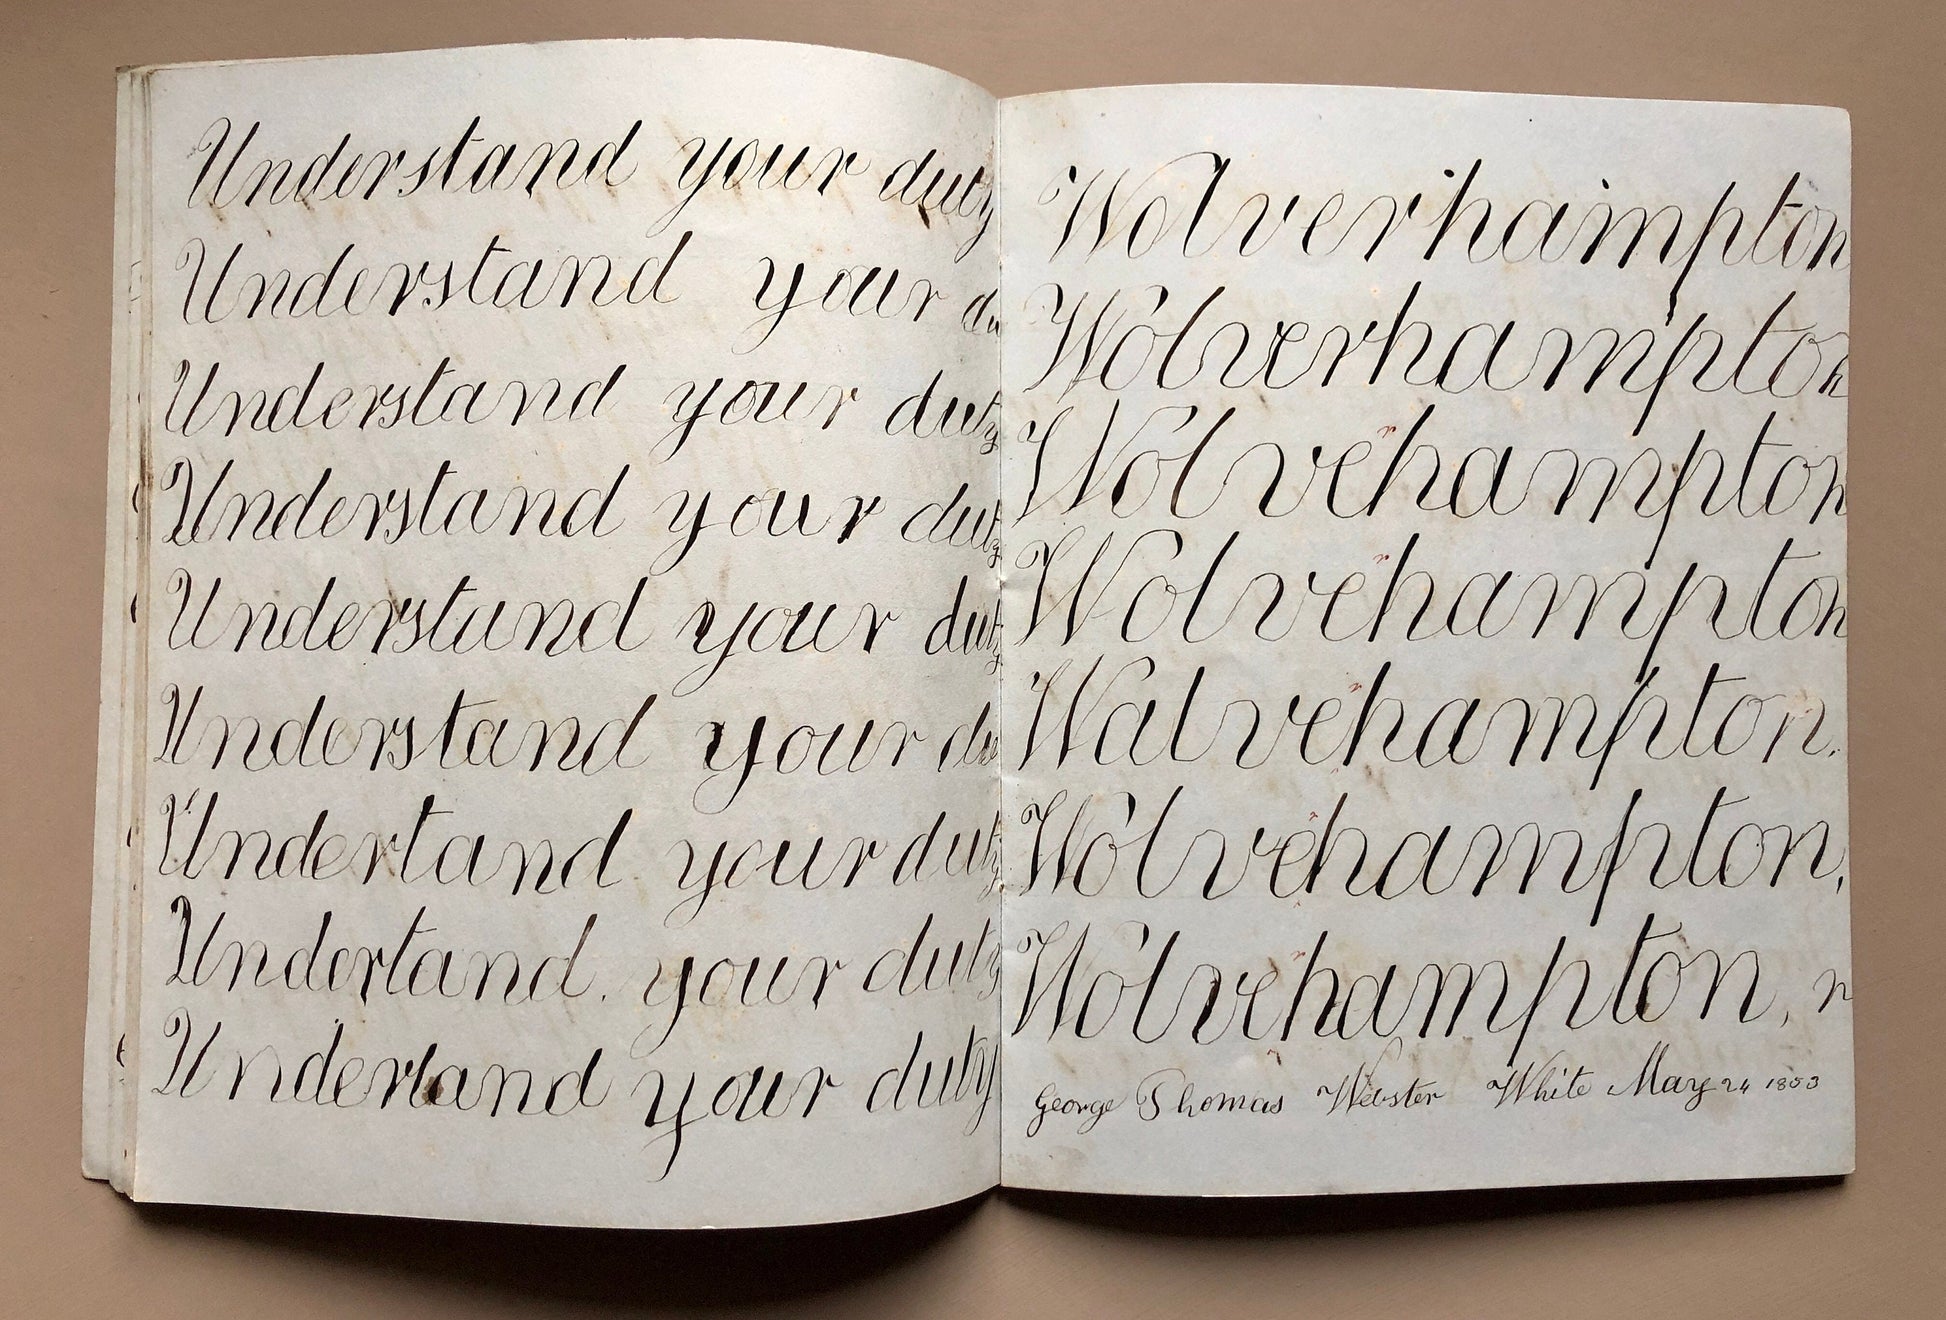 Understand your duty
Understand your du
Understand your duty
Understand your duty
Understand your duty
Understand your du
Undertand your duty
Undertand. your duty
Undertand your duty
Wolverhampton
Wolverhampton
Wolvehampton
r
Wolvehampton
r
Walvehampton.
r
Wolvehampton,
r
Wolvehampton, n
r
George Thomas Webster White May 24 1853